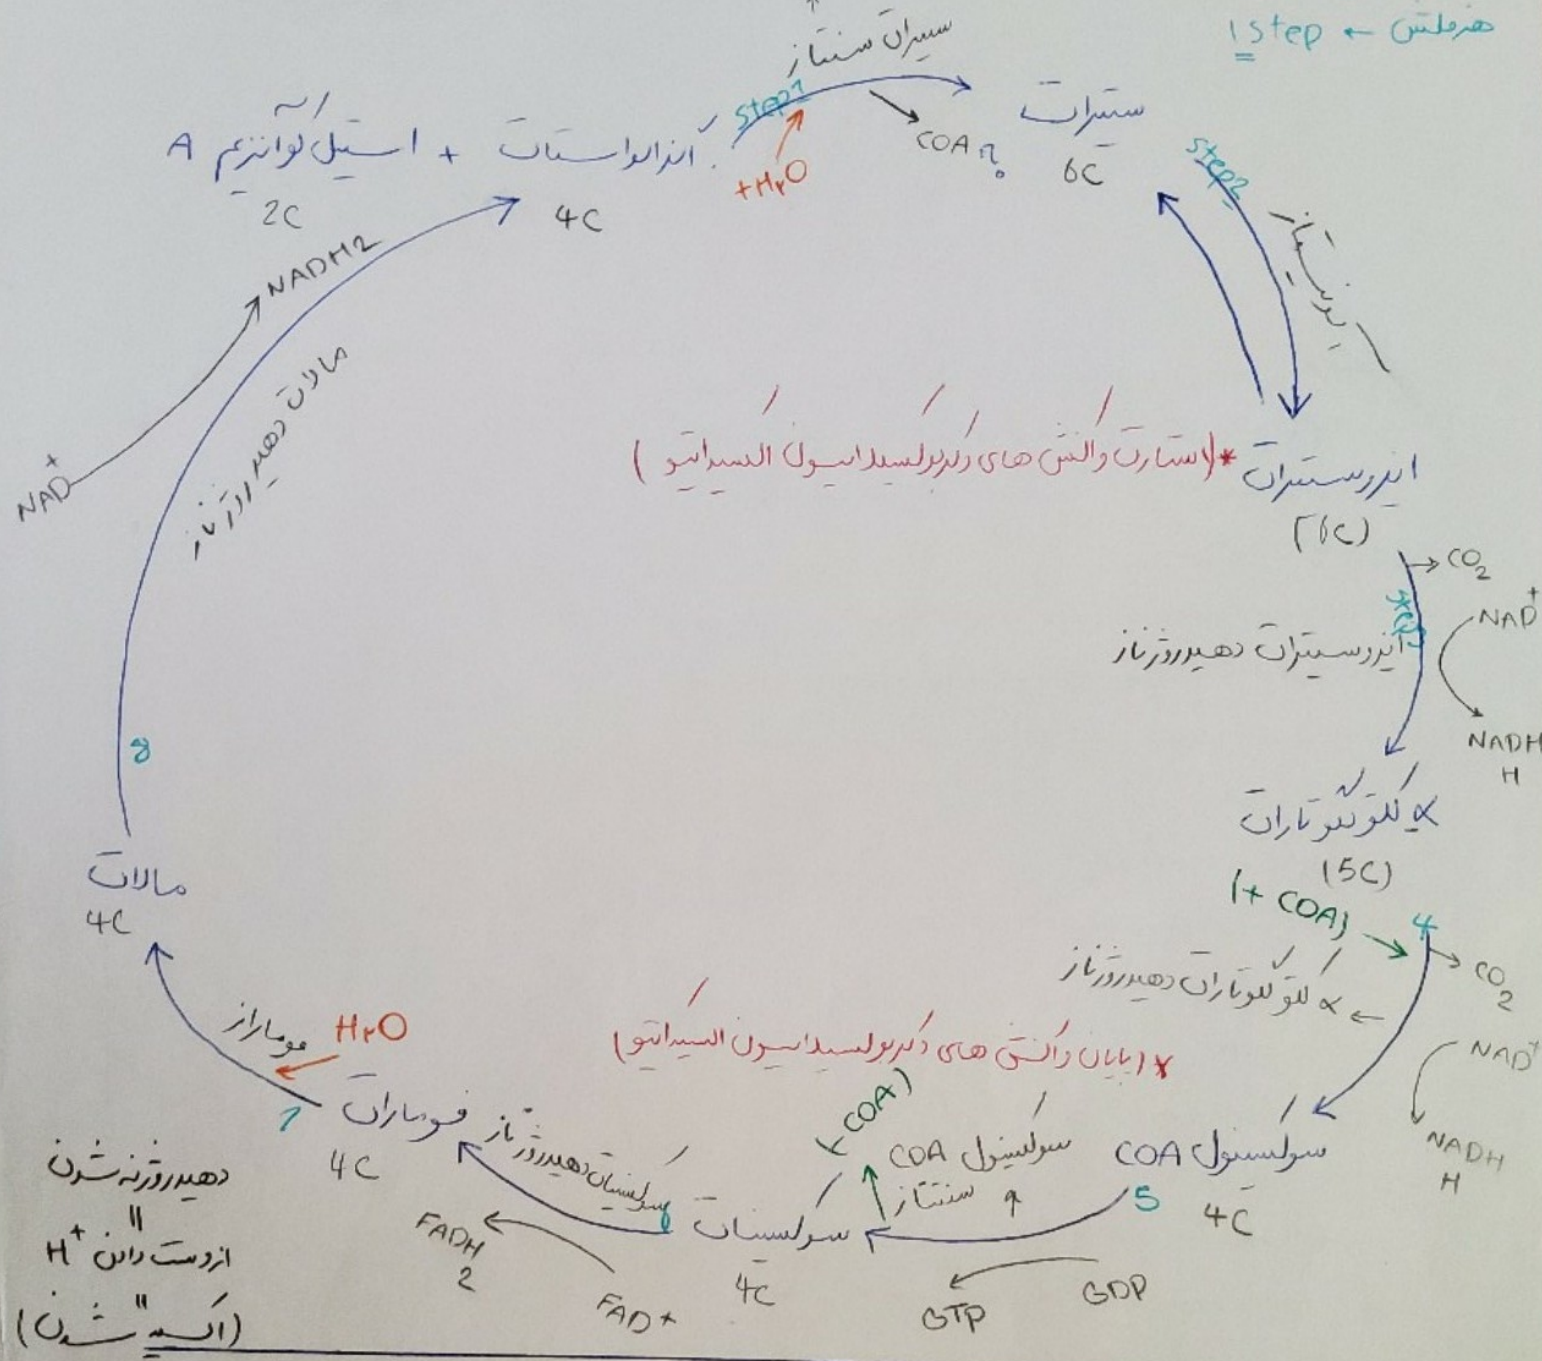 هر فلش ← 1 step
سیترات سنتاز
step1
+H₂O
COA
استیل کوآنزیم A + اگزالواستات
2C
4C
سیترات
6C
step2
ایزومراز
*(استارت واکنش های دکربوکسیلاسیون اکسیداتیو)
ایزوسیترات
(6C)
CO2
NAD+
NADH
H
ایزوسیترات دهیدروژناز
α کتوگلوتارات
(5C)
(+ COA)
4
CO2
α کتوگلوتارات دهیدروژناز
NAD+
NADH
H
*(پایان واکنش های دکربوکسیلاسیون اکسیداتیو)
سوکسینیل COA
4C
5
سوکسینیل COA
سنتتاز
(-COA)
GDP
GTP
سوکسینات
4C
6
سوکسینات دهیدروژناز
FAD+
FADH
2
فومارات
4C
7
H₂O
فوماراز
مالات
4C
8
مالات دهیدروژناز
NAD+
NADH2
دهیدروژنه شدن
=
از دست دادن H+
=
(اکسید شدن)